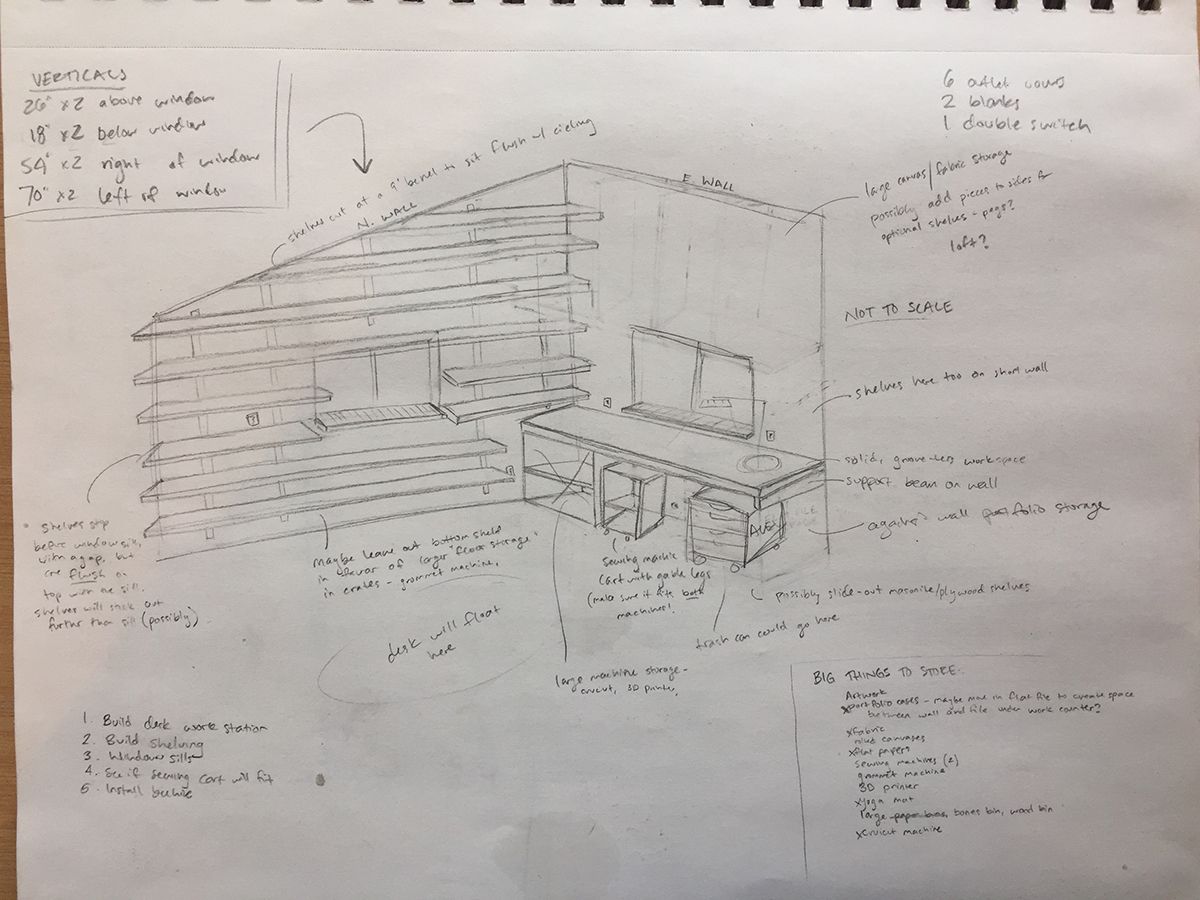 VERTICALS
26" x2 above window
18" x2 below window
54" x2 right of window
70" x2 left of window
6 outlet covers
2 blanks
1 double switch
shelves cut at a 9° bevel to sit flush w/ cieling
N. WALL
E. WALL
large canvas/fabric storage
possibly add pieces to sides for
optional shelves - pegs?
loft?
NOT TO SCALE
shelves here too on short wall
solid, groove-less workspace
support beam on wall
against wall portfolio storage
* shelves stop
before window sill,
with a gap, but
are flush on
top with the sill.
shelves will stick out
further than sill (possibly).
maybe leave out bottom shelf
in favor of larger "floor storage"
in crates - grommet machine,
sewing machine
cart with gable legs
(make sure it fits both
machines!
possibly slide-out masonite/plywood shelves
trash can could go here
desk will float
here
large machine storage -
cricut, 3D printer,
1. Build desk work station
2. Build shelving
3. Window sills
4. See if sewing cart will fit
5. Install beehive
BIG THINGS TO STORE:
Artwork
x portfolio cases - maybe move in flat file to create space
between wall and file under work counter?
x fabric
canvases
x flat papers
sewing machines (2)
grommet machine
3D printer
x yoga mat
large paper bins, bones bin, wood bin
x cruicut machine